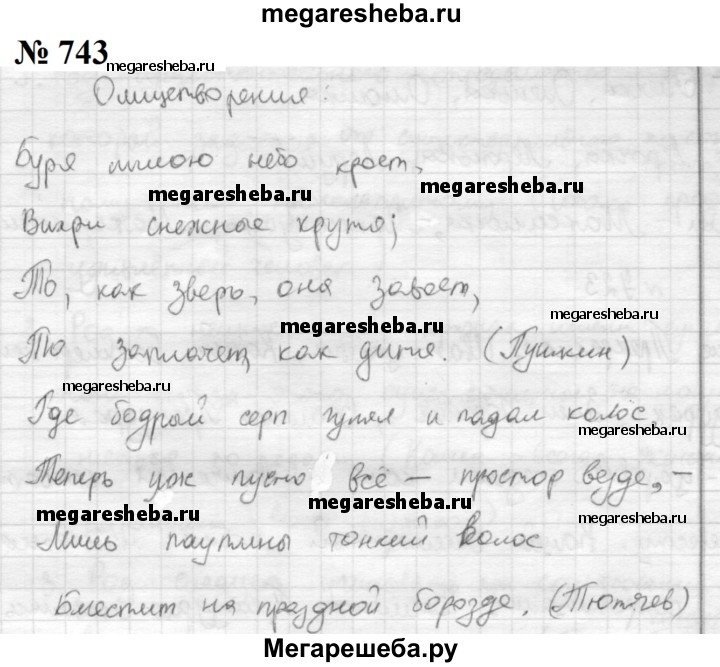 megaresheba.ru
№ 743
megaresheba.ru
Олицетворения:
Буря мглою небо кроет,
megaresheba.ru megaresheba.ru
Вихри снежные крутя;
То, как зверь, она завоет,
megaresheba.ru megaresheba.ru
То заплачет, как дитя. (Пушкин)
megaresheba.ru
Где бодрый серп гулял и падал колос,
megaresheba.ru
Теперь уж пусто всё – простор везде, –
megaresheba.ru megaresheba.ru megaresheba.ru
Лишь паутины тонкий волос
Блестит на праздной борозде. (Тютчев)
Мегарешеба.ру